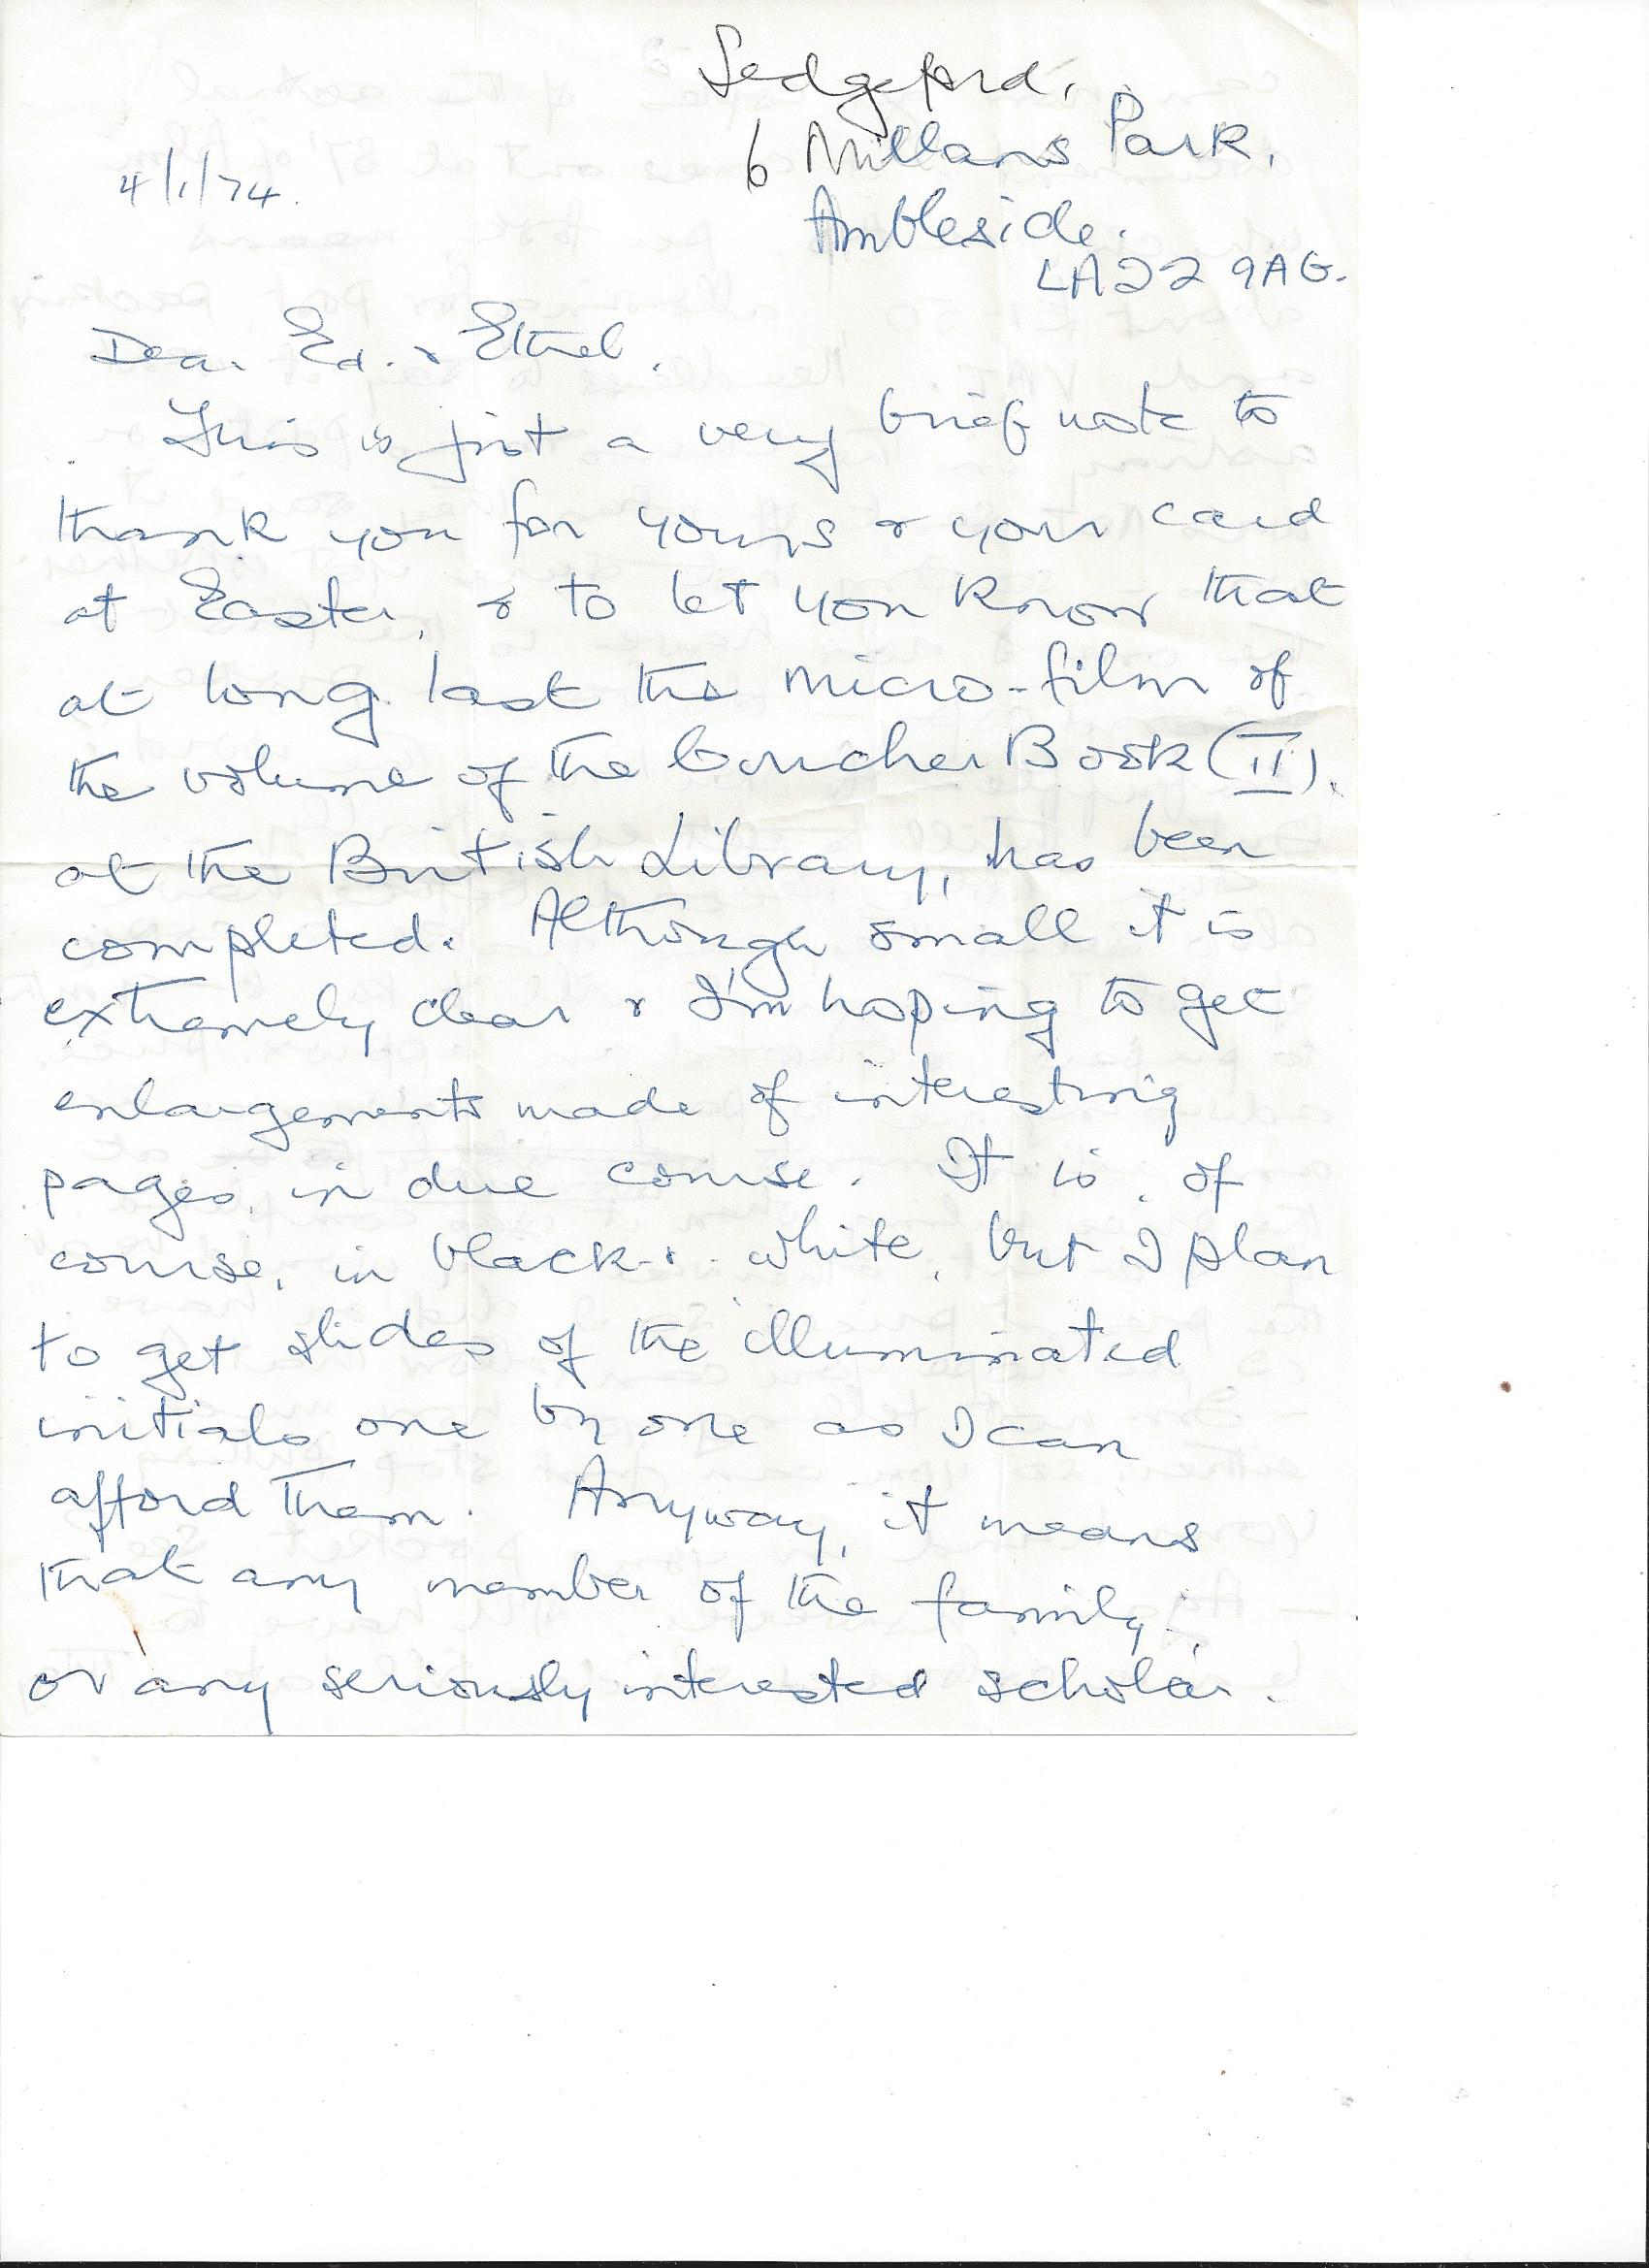 Sedgeford,
6 Millans Park,
4/1/74.
Ambleside.
LA22 9AG.
Dear Ed. & Ethel.
This is just a very brief note to
thank you for yours & your card
at Easter, & to let you know that
at long last the micro-film of
the volume of the Coucher Book (II).
at the British Library, has been
completed. Although small it is
extremely clear & I'm hoping to get
enlargements made of interesting
pages, in due course. It is, of
course, in black-&-white, but I plan
to get slides of the illuminated
initials one by one as I can
afford them. Anyway, it means
that any member of the family,
or any seriously interested scholar.